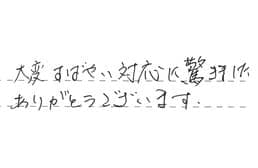 大変すばやい対応に驚きました
ありがとうございます.